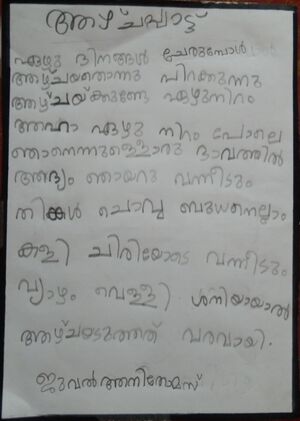 ആഴ്ചപ്പാട്ട്
ഏഴു ദിനങ്ങൾ ചേരുമ്പോൾ
ആഴ്ചയതൊന്നു പിറക്കുന്നു
ആഴ്ചയ്ക്കുണ്ടേ ഏഴുനിറം
ആഹാ ഏഴു നിറം പോലെ
ഞാനെന്നുള്ളൊരു ഭാവത്തിൽ
ആദ്യം ഞായറു വന്നീടും
തിങ്കൾ ചൊവ്വ ബുധനെല്ലാം
കളി ചിരിയോടെ വന്നീടും
വ്യാഴം വെള്ളി ശനിയായാൽ
ആഴ്ചയടുത്തത് വരവായി.
ജുവൽ അനിതോമസ്